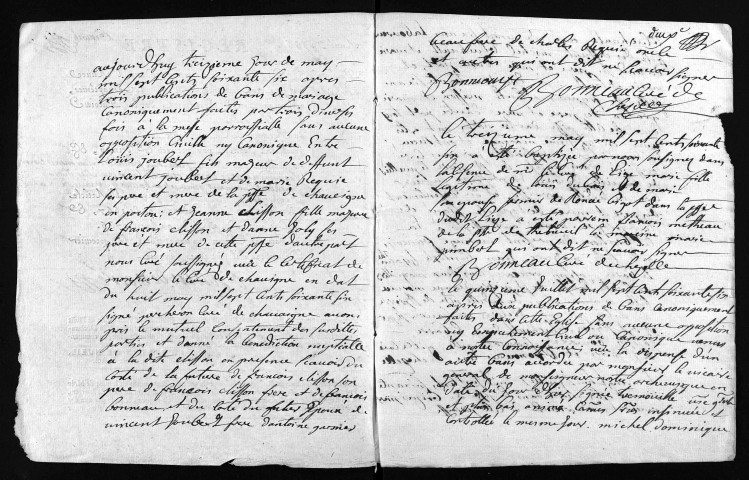 aujourdhuy treizieme jour de may
mil sept cents soixante six apres
trois publications de bans de mariage
canoniquement faites par trois diverses
fois à la messe parroissialle sans aucune
opposition civille ny canonique Entre
Louis Joubert fils majeur de deffunt
vincent Joubert et de marie Requie
ses pere et mere de la psse de chaveigne
en poitou: et Jeanne clisson fille majeure
de francois clisson et d'anne Joly ses
pere et mere de cette psse d'autre part
nous curé soussigné vue le Certificat de
monsieur le Curé de chaveigne en dat
du huit may mil sept cents soixante six
signé curé de chaveigne avons
pris le mutuel consentement des susdittes
parties et donné la benediction nuptialle
à la dite clisson en presence scavoir du
costé de la future de francois clisson son
pere de francois clisson frere et de francois
bonneau et du coté du futur Epoux de
vincent Joubert frere d'antoine garnier
beau frere de charles Requie oncle
et autres qui ont dit ne scavoir signer
Bonneau curé de
le treizieme may mil sept cents soixante
six a été baptisée par nous soussigné dans
l'absence de mr le curé de Lizé marie fille
Legitime de Louis et de marie
son epouse dans la psse
dudit Lizé a esté parrein francois metheau
de la psse de la mareine marie
qui ont dit ne scavoir signer
Bonneau curé
le quinzieme Juillet mil sept cents soixante six
apres deux publications de bans canoniquement
faites dans cette Eglise sans aucune opposition
ny Empeschement civil ou Canonique venus
à notre connoissance vue la dispense d'un
autre bans accordé par monsieur le vicaire
general de monseigneur notre archevesque en
date du jour d'hier signée
et plus bas insinuée et
controllée le mesme jour. michel dominique